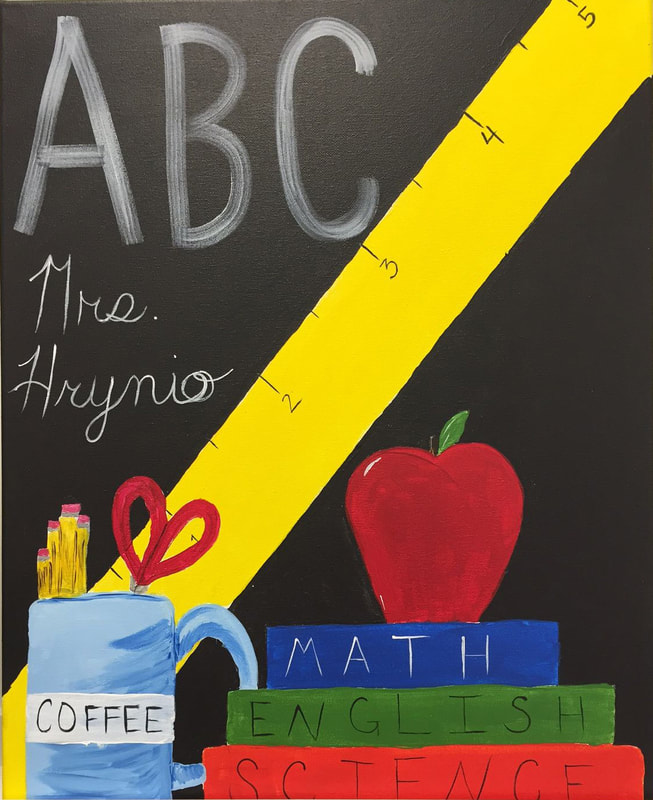 ABC
Mrs.
Hrynio
5
4
3
2
1
COFFEE
MATH
ENGLISH
SCIENCE